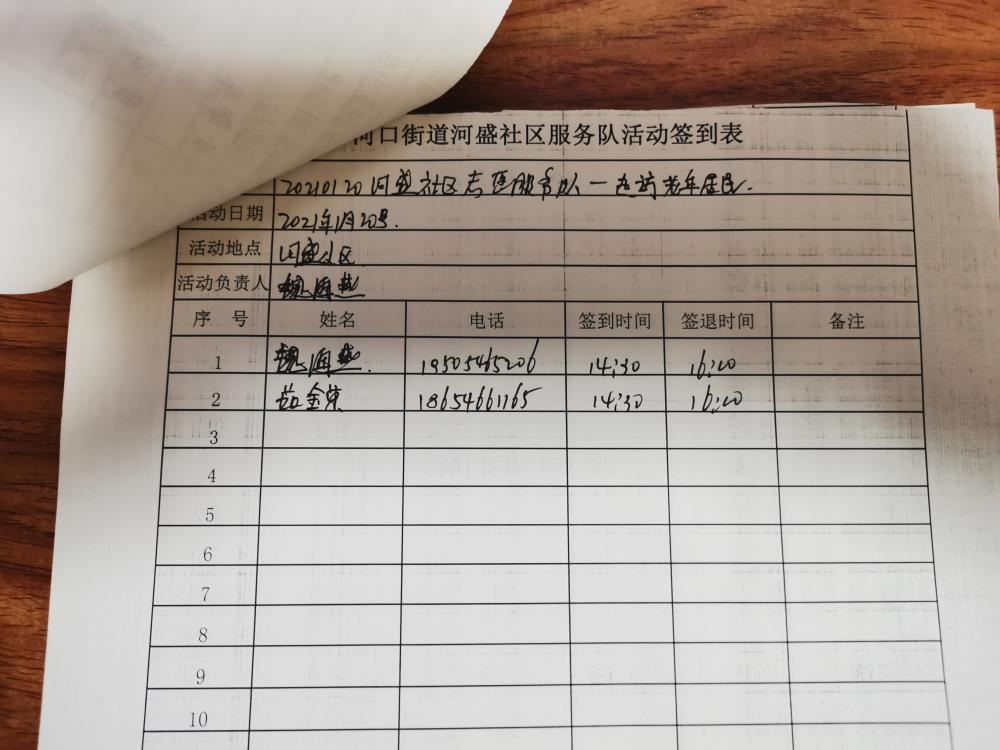 河口街道河盛社区服务队活动签到表
20210120河盛社区志愿服务队一走访老年居民.
活动日期 2021年1月20号.
活动地点 河盛社区
活动负责人
序 号 姓名 电话 签到时间 签退时间 备注
1 19505465206 14:30 16:20
2 18654661165 14:30 16:20
3
4
5
6
7
8
9
10